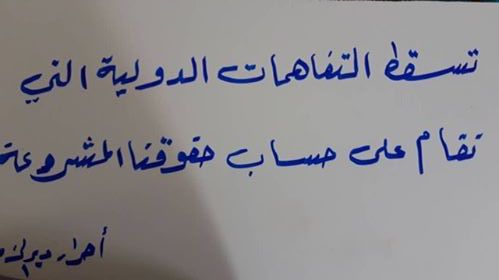 تسقط التفاهمات الدولية التي
تقام على حساب حقوقنا المشروعة
أحرار